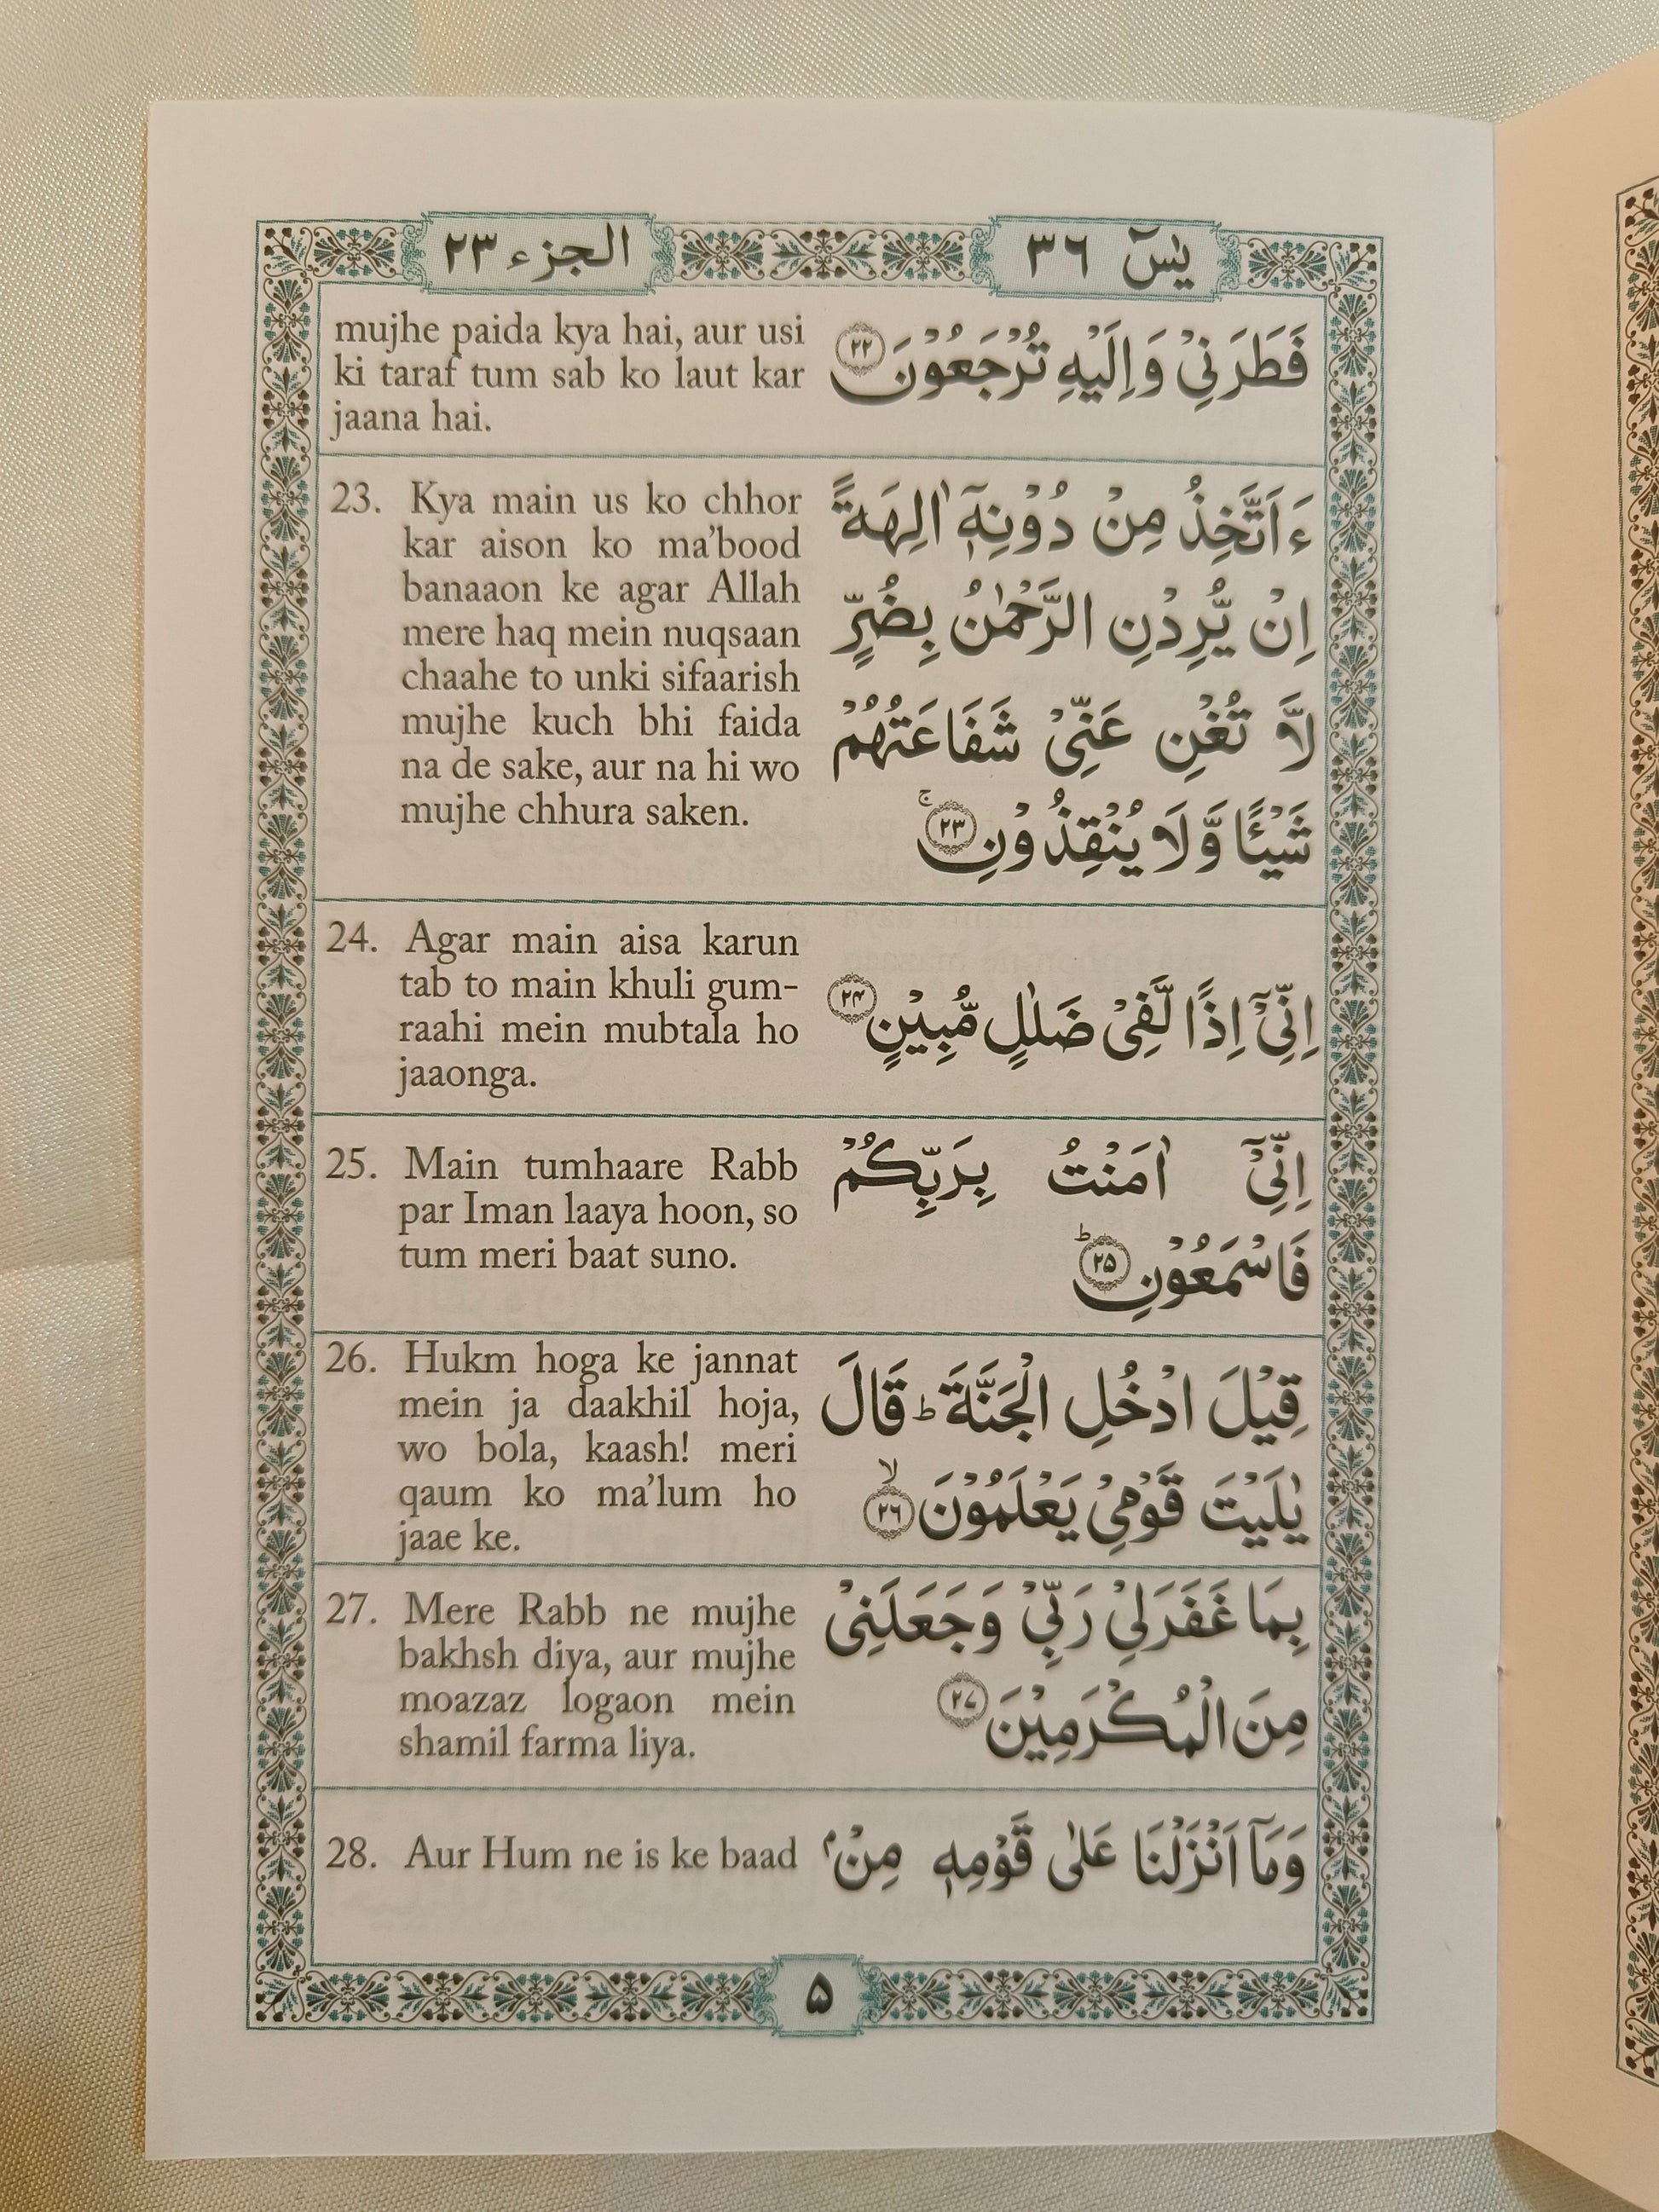 الجزء ٢٣
يٰسٓ ٣٦
mujhe paida kya hai, aur usi
ki taraf tum sab ko laut kar
jaana hai.
فَطَرَنِيْ وَاِلَيْهِ تُرْجَعُوْنَ ٢٢
23. Kya main us ko chhor
kar aison ko ma’bood
banaaon ke agar Allah
mere haq mein nuqsaan
chaahe to unki sifaarish
mujhe kuch bhi faida
na de sake, aur na hi wo
mujhe chhura saken.
ءَاَتَّخِذُ مِنْ دُوْنِهٖٓ اٰلِهَةً
اِنْ يُّرِدْنِ الرَّحْمٰنُ بِضُرٍّ
لَّا تُغْنِ عَنِّيْ شَفَاعَتُهُمْ
شَيْـًٔا وَّلَا يُنْقِذُوْنِ ۚ ٢٣
24. Agar main aisa karun
tab to main khuli gum-
raahi mein mubtala ho
jaaonga.
اِنِّيْٓ اِذًا لَّفِيْ ضَلٰلٍ مُّبِيْنٍ ٢۴
25. Main tumhaare Rabb
par Iman laaya hoon, so
tum meri baat suno.
اِنِّيْٓ اٰمَنْتُ بِرَبِّكُمْ
فَاسْمَعُوْنِ ؕ ٢۵
26. Hukm hoga ke jannat
mein ja daakhil hoja,
wo bola, kaash! meri
qaum ko ma’lum ho
jaae ke.
قِيْلَ ادْخُلِ الْجَنَّةَ ؕ قَالَ
يٰلَيْتَ قَوْمِيْ يَعْلَمُوْنَ ۙ ٢٦
27. Mere Rabb ne mujhe
bakhsh diya, aur mujhe
moazaz logaon mein
shamil farma liya.
بِمَا غَفَرَلِيْ رَبِّيْ وَجَعَلَنِيْ
مِنَ الْمُكْرَمِيْنَ ٢٧
28. Aur Hum ne is ke baad
وَمَآ اَنْزَلْنَا عَلٰى قَوْمِهٖ مِنْۢ
۵